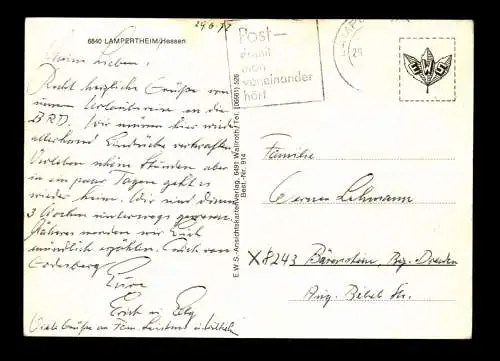 29.6.
6840 LAMPERTHEIM/Hessen
Post-
damit
man
voneinander
hört
Meine Lieben!
Recht herzliche Grüße von
unserer Urlaubsreise in die
BRD. Wir müssen hier wieder
allerhand Eindrücke verkraften.
Verleben schöne Stunden aber
in ein paar Tagen geht es
wieder heim. Wir sind dann
3 Wochen unterwegs gewesen.
Näheres werden wir Euch
mündlich erzählen. Auch von
Godesberg
Eure
Erich u.
Viele Grüße an Fam. u. Wilhelm
E.W.S.-Ansichtskartenverlag, 6491 Wallroth/Tel. (06661) 526
Best.-Nr. 914
EWS
Familie
Werner Lehmann
X 8243 Bärenstein, Bez. Dresden
Aug. Bebel Str.